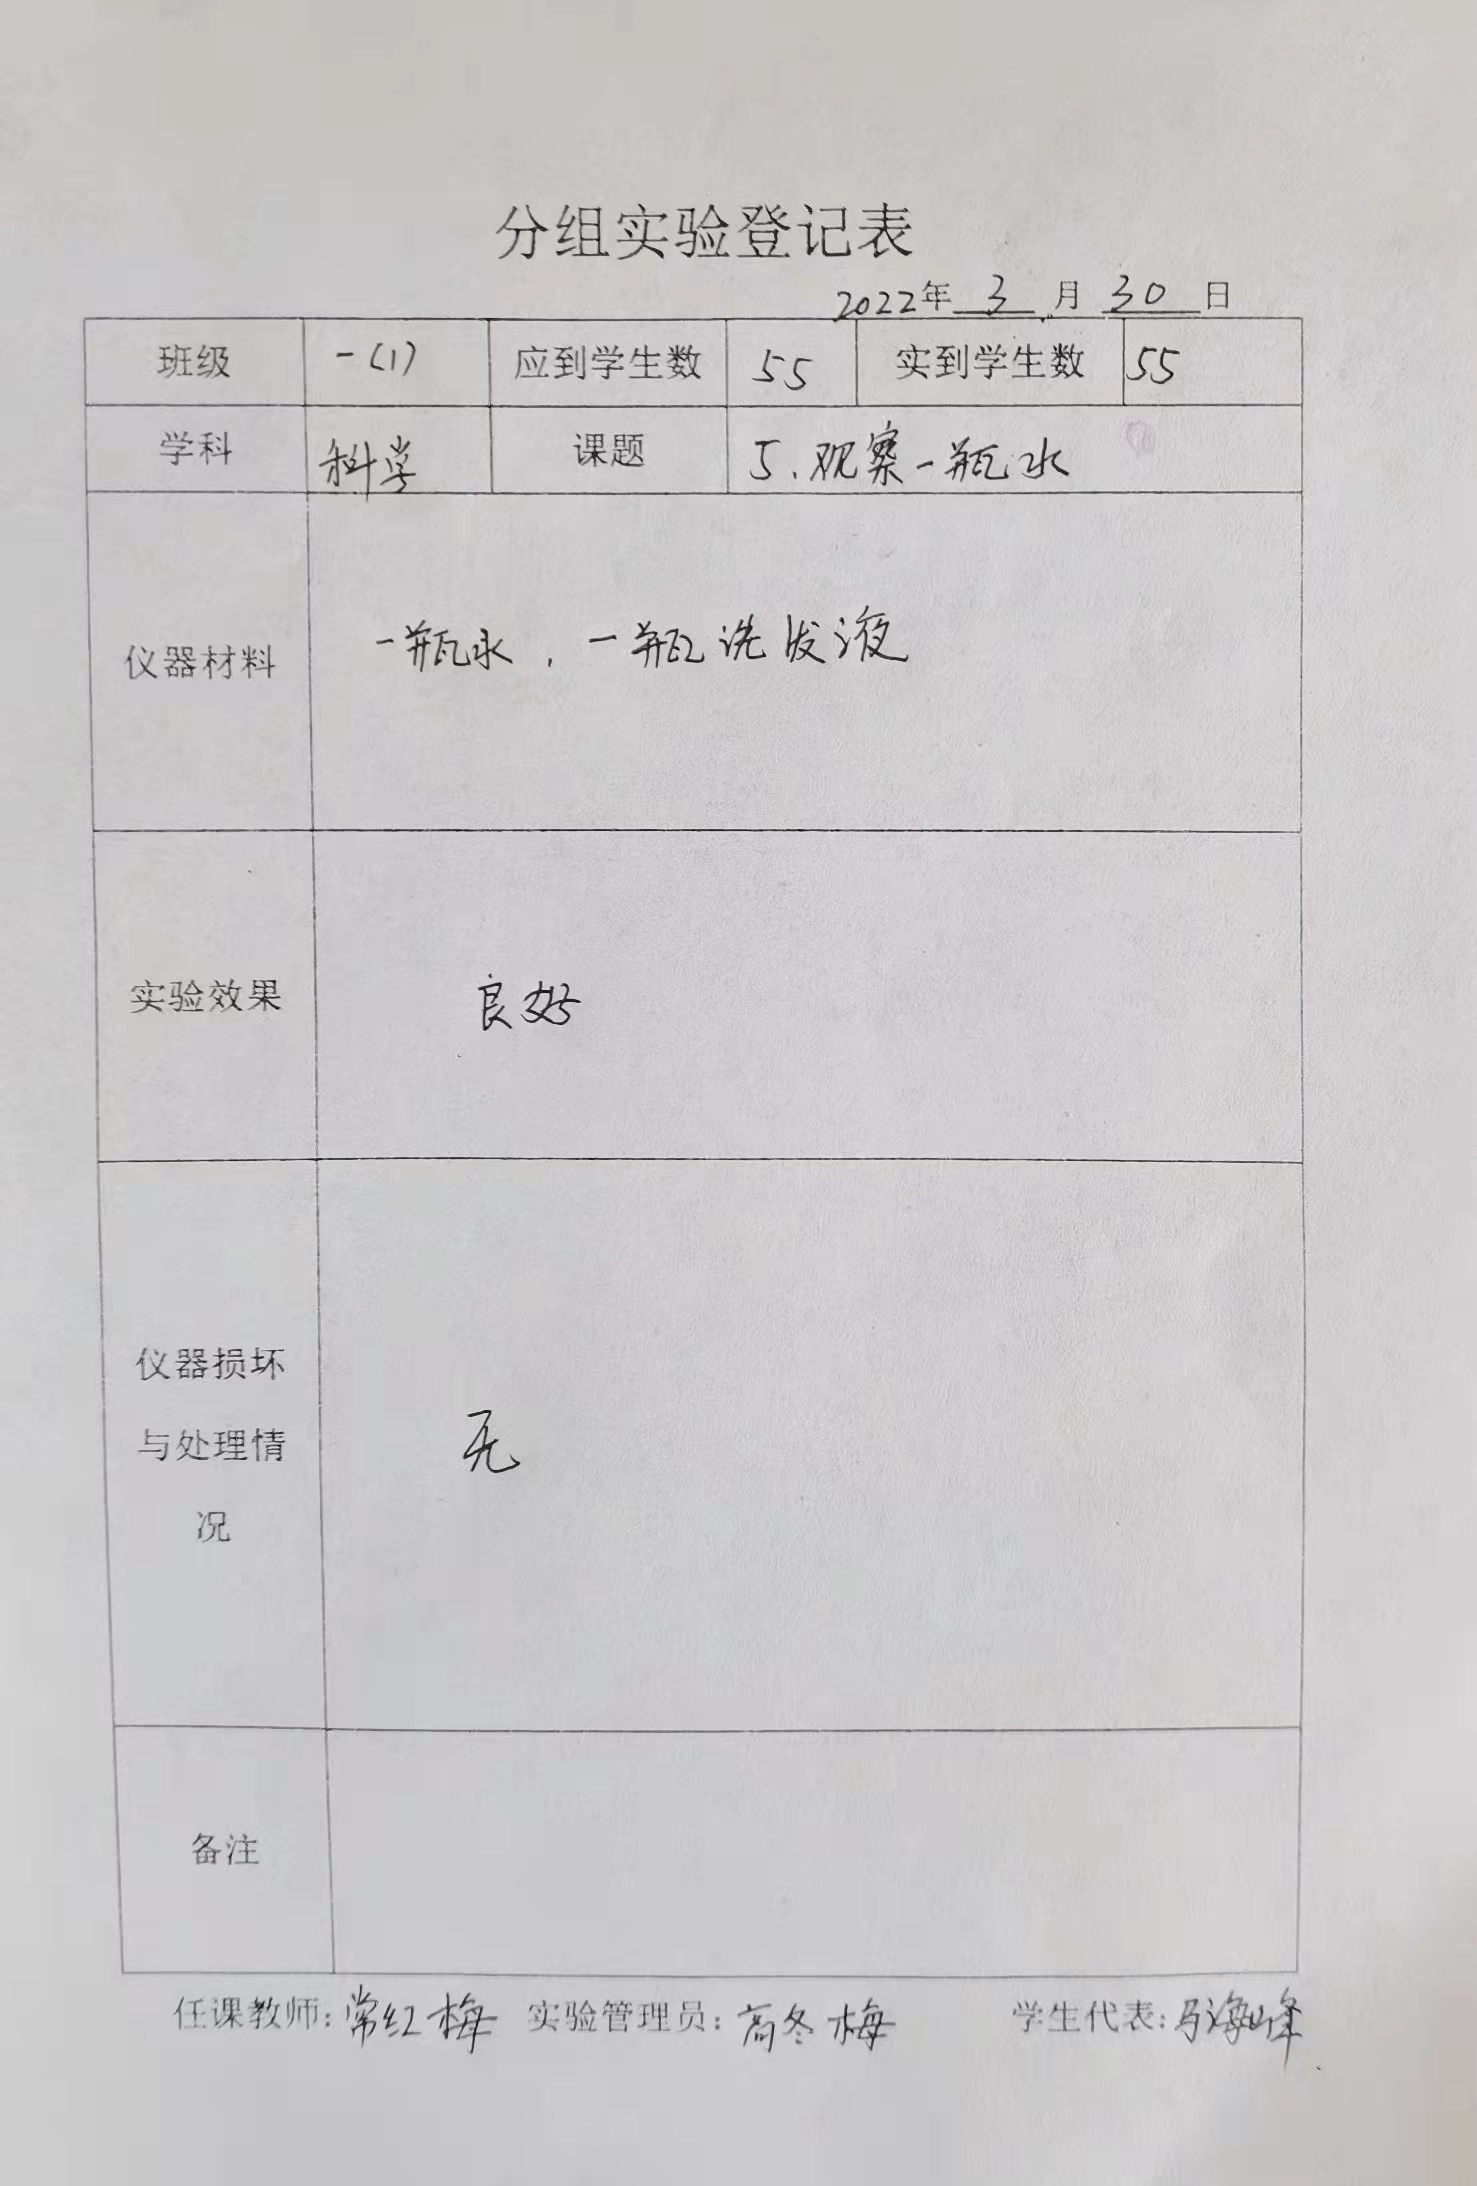 分组实验登记表
2022年 3 月 30 日
班级 一(1) 应到学生数 55 实到学生数 55
学科 科学 课题 5.观察一瓶水
仪器材料 一瓶水，一瓶洗发液
实验效果 良好
仪器损坏
与处理情
况
无
备注
任课教师：常红梅 实验管理员：高冬梅 学生代表：马海峰